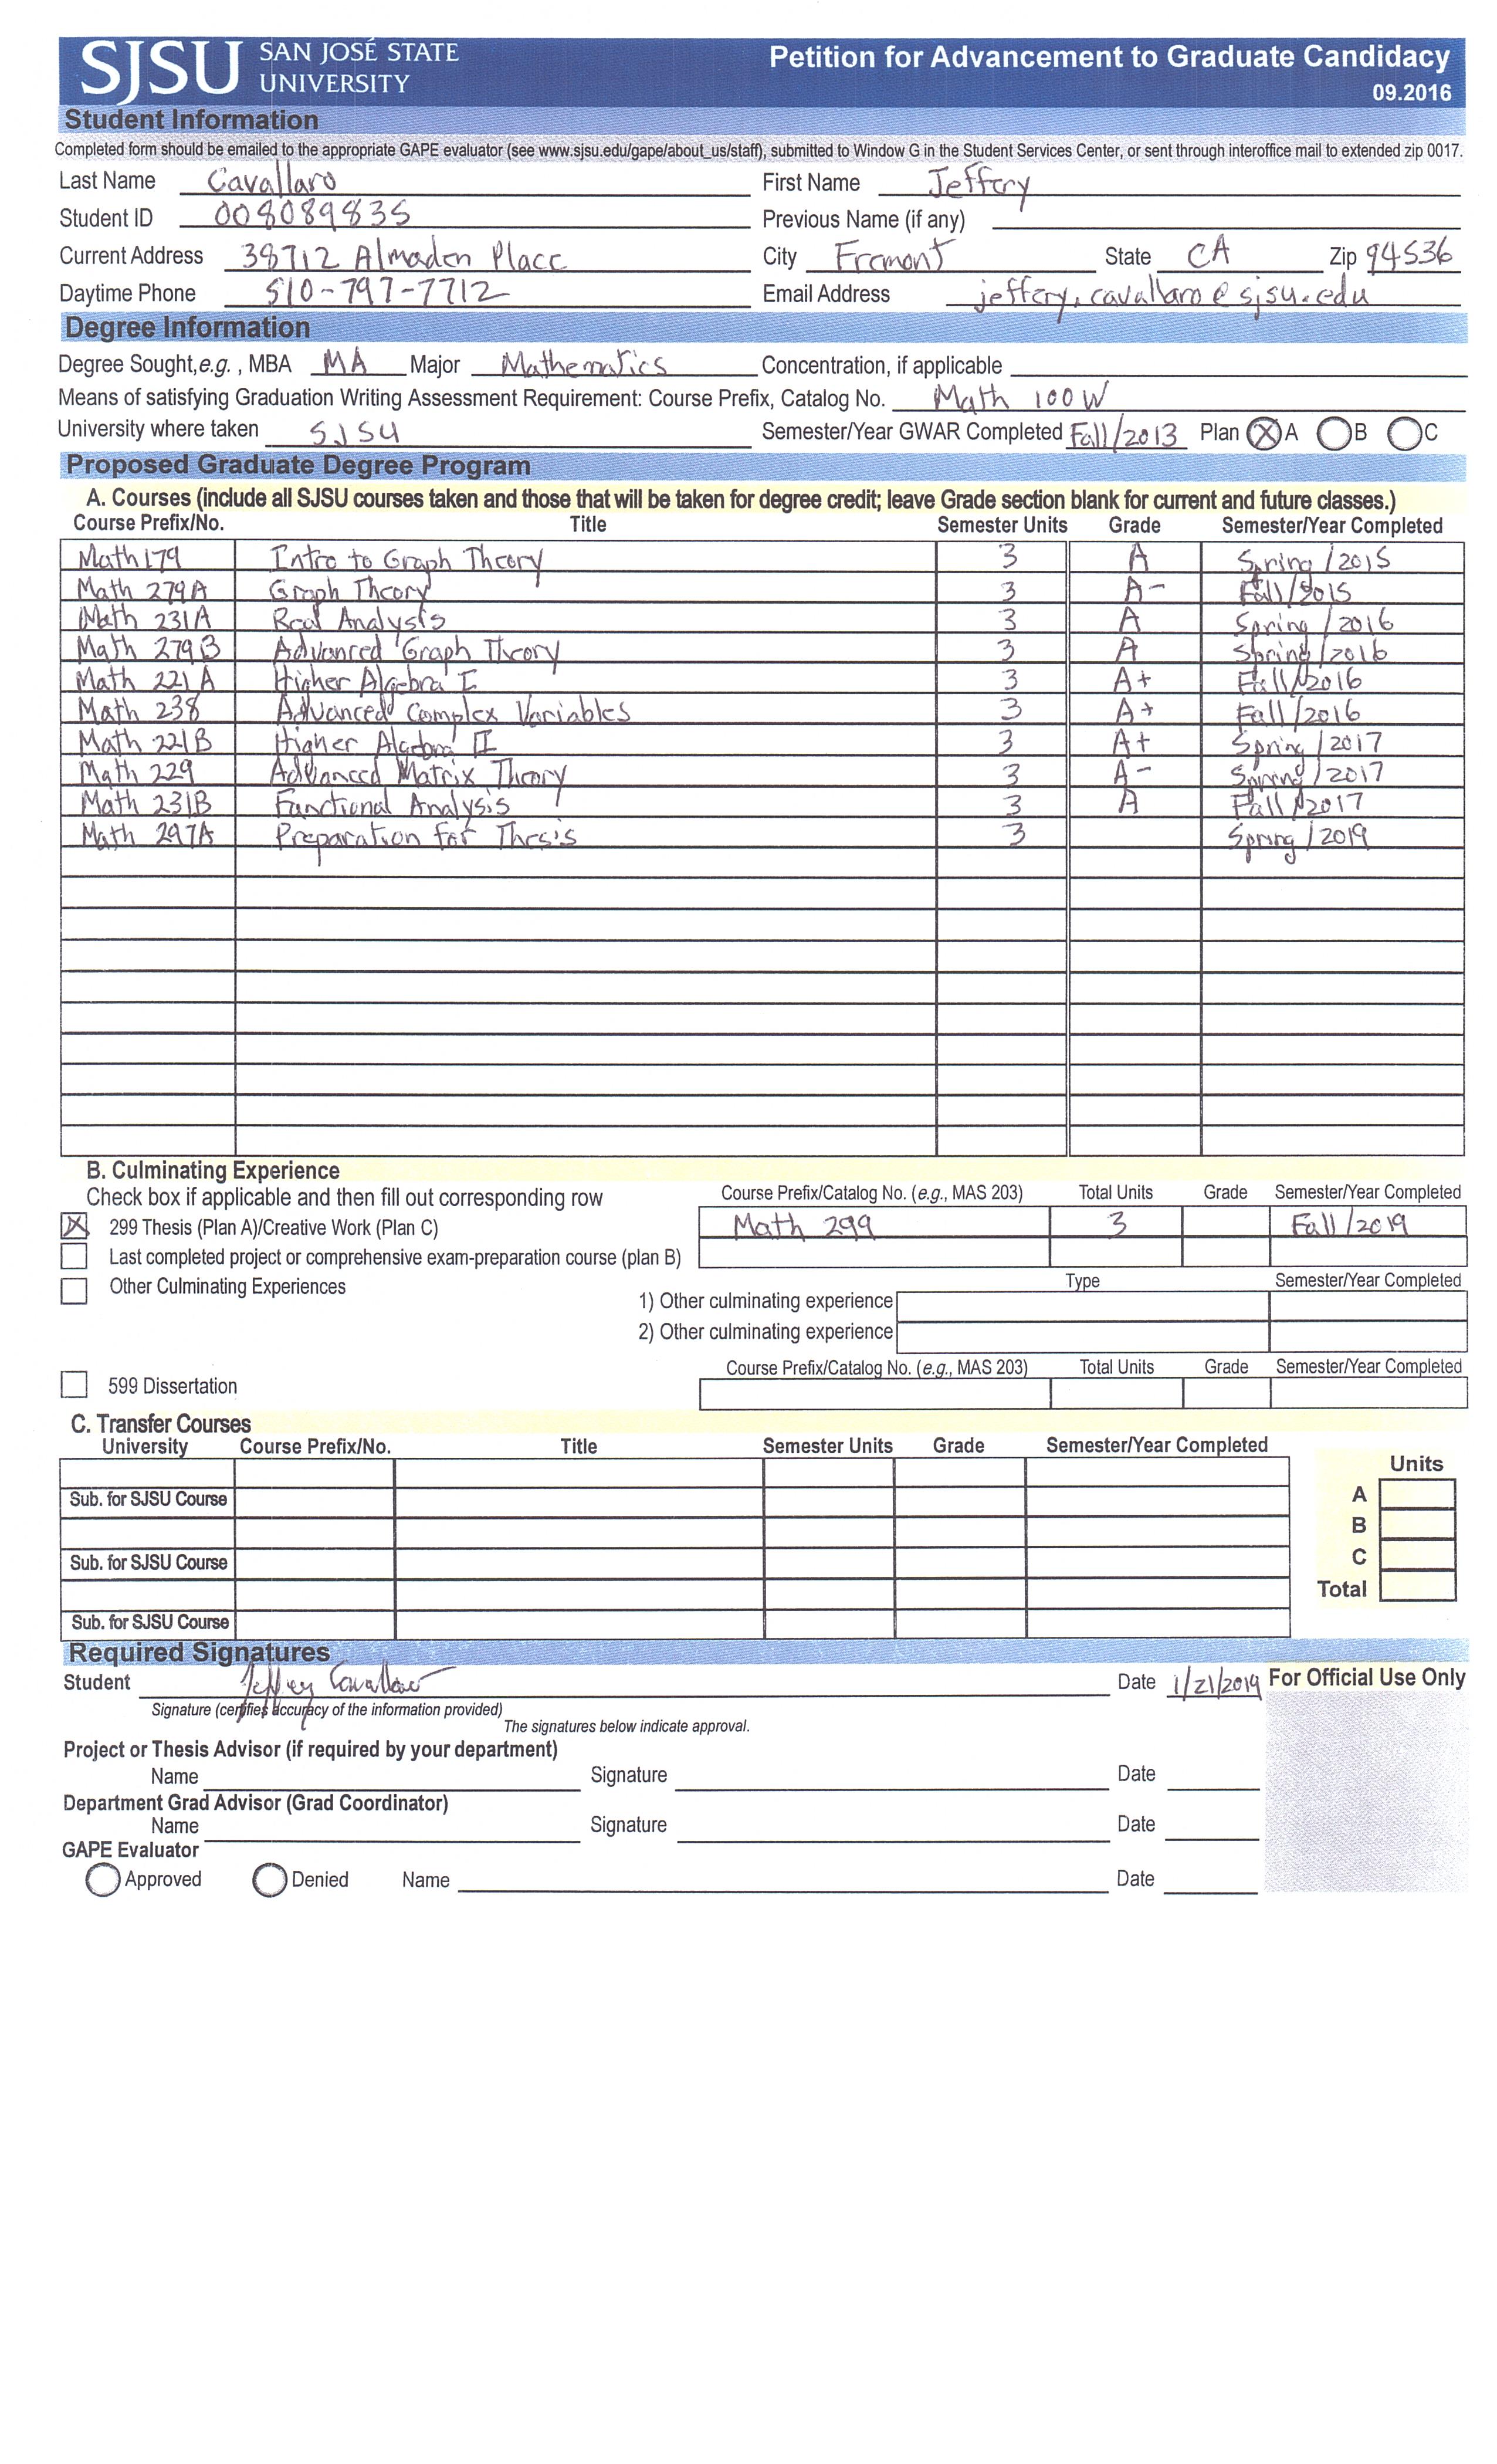 SJSU SAN JOSÉ STATE UNIVERSITY
Petition for Advancement to Graduate Candidacy
09.2016
Student Information
Completed form should be emailed to the appropriate GAPE evaluator (see www.sjsu.edu/gape/about_us/staff), submitted to Window G in the Student Services Center, or sent through interoffice mail to extended zip 0017.
Last Name Cavallaro First Name Jeffery
Student ID 008089835 Previous Name (if any)
Current Address 38712 Almaden Place City Fremont State CA Zip 94536
Daytime Phone 510-797-7712 Email Address jeffery.cavallaro@sjsu.edu
Degree Information
Degree Sought, e.g., MBA MA Major Mathematics Concentration, if applicable
Means of satisfying Graduation Writing Assessment Requirement: Course Prefix, Catalog No. Math 100W
University where taken SJSU Semester/Year GWAR Completed Fall/2013 Plan X A B C
Proposed Graduate Degree Program
A. Courses (include all SJSU courses taken and those that will be taken for degree credit; leave Grade section blank for current and future classes.)
Course Prefix/No. Title Semester Units Grade Semester/Year Completed
Math 179 Intro to Graph Theory 3 A Spring/2015
Math 279A Graph Theory 3 A- Fall/2015
Math 231A Real Analysis 3 A Spring/2016
Math 279B Advanced Graph Theory 3 A Spring/2016
Math 221A Higher Algebra I 3 A+ Fall/2016
Math 238 Advanced Complex Variables 3 A+ Fall/2016
Math 221B Higher Algebra II 3 A+ Spring/2017
Math 229 Advanced Matrix Theory 3 A- Spring/2017
Math 231B Functional Analysis 3 A Fall/2017
Math 297A Preparation for Thesis 3 Spring/2019
B. Culminating Experience
Check box if applicable and then fill out corresponding row Course Prefix/Catalog No. (e.g., MAS 203) Total Units Grade Semester/Year Completed
X 299 Thesis (Plan A)/Creative Work (Plan C) Math 299 3 Fall/2019
Last completed project or comprehensive exam-preparation course (plan B)
Other Culminating Experiences Type Semester/Year Completed
1) Other culminating experience
2) Other culminating experience
Course Prefix/Catalog No. (e.g., MAS 203) Total Units Grade Semester/Year Completed
599 Dissertation
C. Transfer Courses
University Course Prefix/No. Title Semester Units Grade Semester/Year Completed
Units
Sub. for SJSU Course A
B
Sub. for SJSU Course C
Total
Sub. for SJSU Course
Required Signatures
Student Jeffery Cavallaro Date 1/21/2019 For Official Use Only
Signature (certifies accuracy of the information provided)
The signatures below indicate approval.
Project or Thesis Advisor (if required by your department)
Name Signature Date
Department Grad Advisor (Grad Coordinator)
Name Signature Date
GAPE Evaluator
Approved Denied Name Date